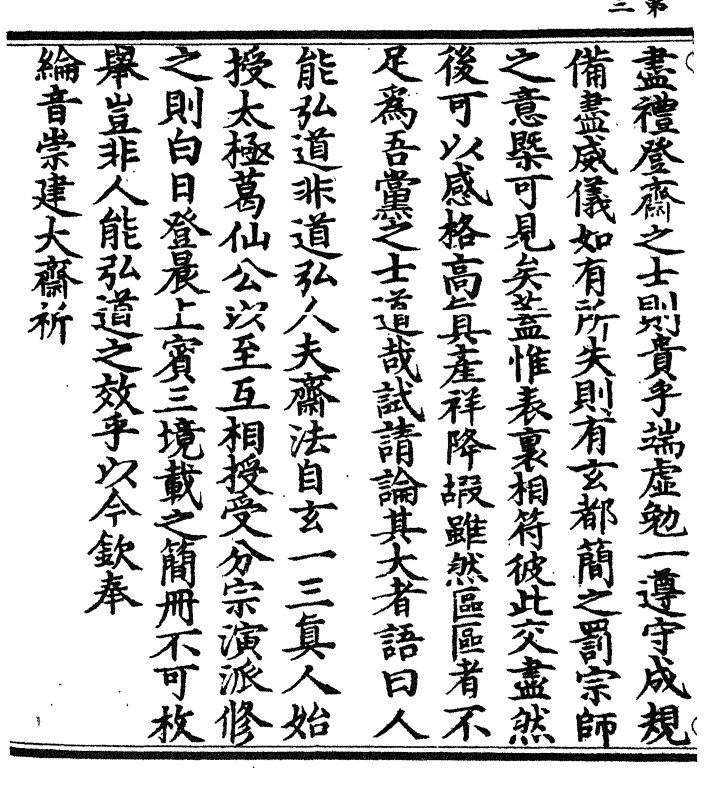 第
三
盡禮登齋之士則貴乎端虛勉一遵守成規
備盡威儀如有所失則有玄都簡之罰宗師
之意槩可見矣蓋惟表裏相符彼此交盡然
後可以感格高眞產祥降嘏雖然區區者不
足爲吾黨之士道哉試請論其大者語曰人
能弘道非道弘人夫齋法自玄一三眞人始
授太極葛仙公以至互相授受分宗演派修
之則白日登晨上賓三境載之簡冊不可枚
舉豈非人能弘道之效乎以今欽奉
綸音崇建大齋祈